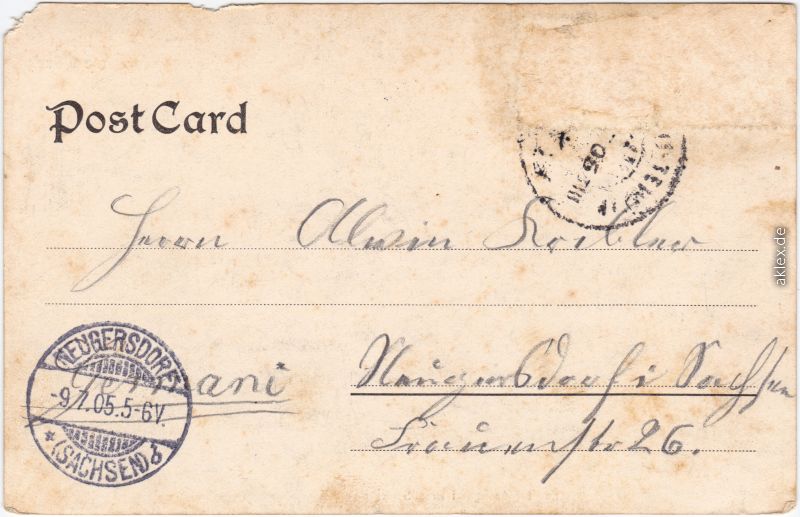 Post Card
Herrn Alwin
Germani
Neugersdorf i Sachsen
Frauenstr 26.
NEUGERSDORF
-9.7.05.5-6V.
* (SACHSEN) d
aklex.de